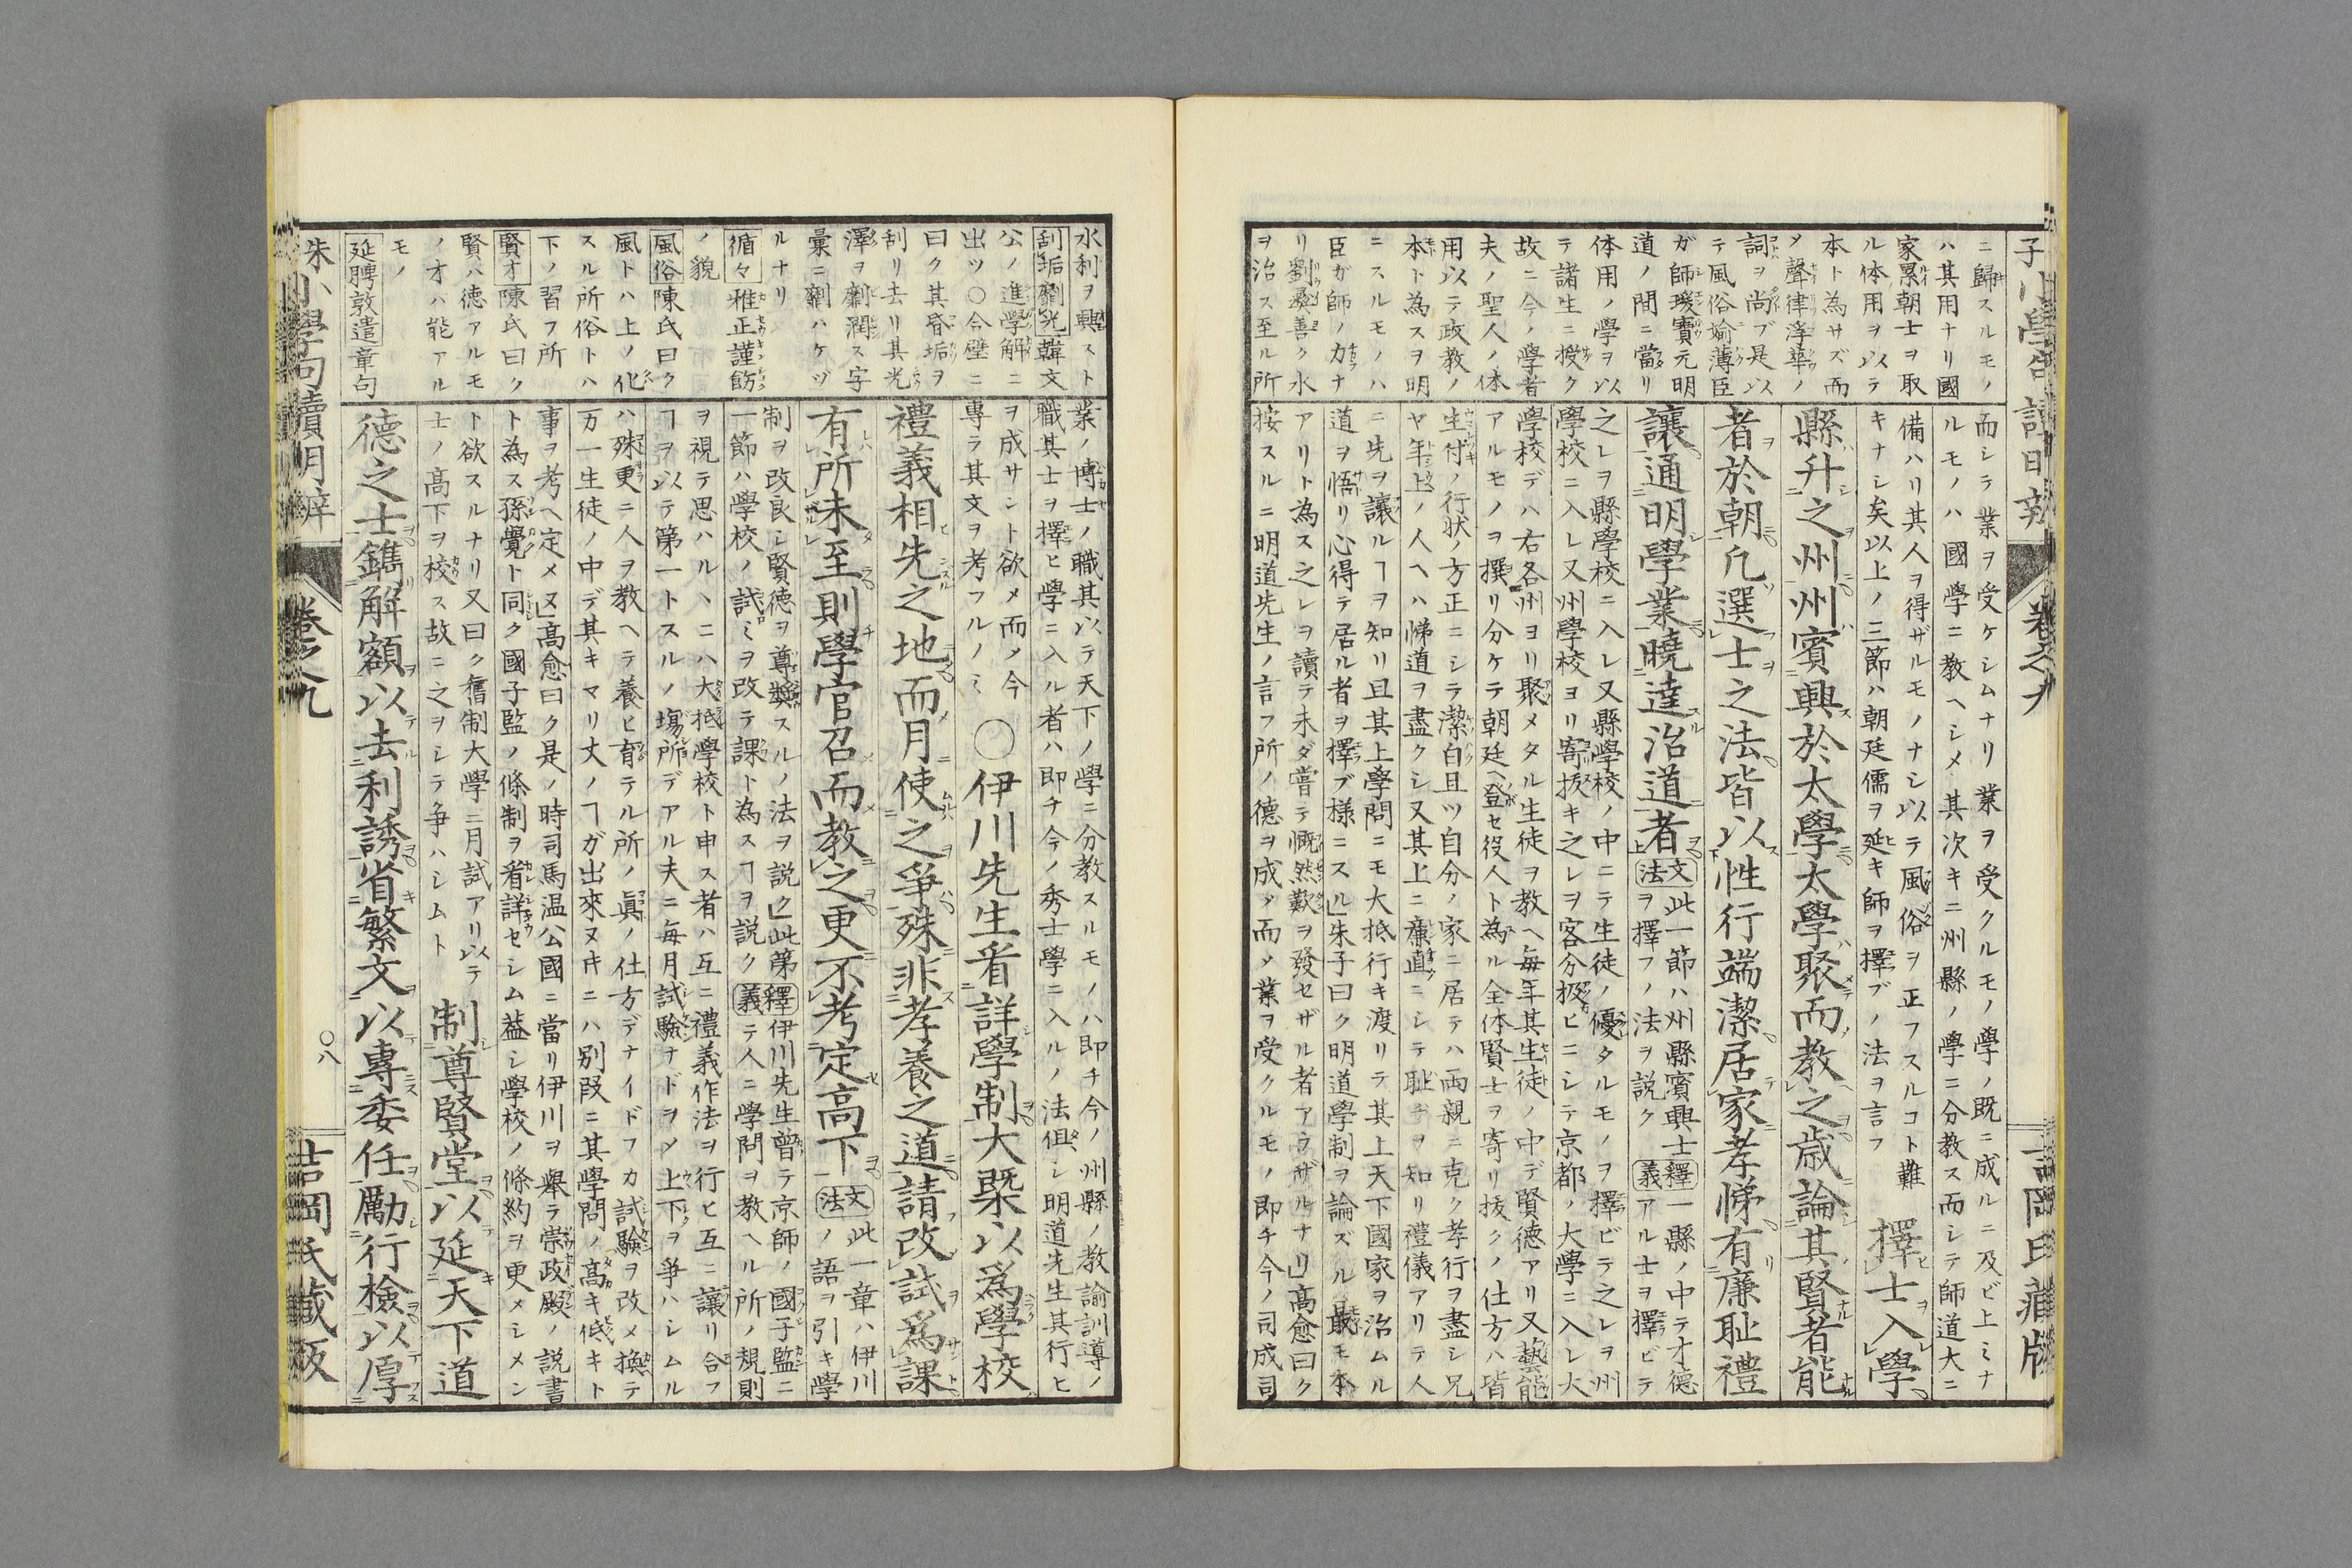 ニ歸スルモノ
ハ其用ナリ國
家累朝士ヲ取
ル体用ヲ以テ
本ト為サズ而
メ聲律浮華ノ
詞ヲ尚ブ是以
テ風俗媮薄臣
ガ師瑗寶元明
道ノ間ニ當リ
体用ノ學ヲ以
テ諸生ニ授ク
故ニ今ノ學者
夫ノ聖人ノ体
用以テ政教ノ
本ト為スヲ明
ニスルモノハ
臣ガ師ノ力ナ
リ劉彛善ク水
ヲ治ス至ル所
而シテ業ヲ受ケシムナリ業ヲ受クルモノ學ノ既ニ成ルニ及ビ上ミナ
ルモノハ國學ニ教ヘシメ其次キニ州縣ノ學ニ分教ス而シテ師道大ニ
備ハリ其人ヲ得ザルモノナシ以テ風俗ヲ正フスルコト難
キナシ矣以上ノ三節ハ朝廷儒ヲ延キ師ヲ擇ブノ法ヲ言フ
擇士入學
縣升之州州賓興於太學太學聚而教之歳論其賢者能
者於朝凡選士之法皆以性行端潔居家孝悌有廉耻禮
讓通明學業曉達治道者
文法此一節ハ州縣賓興士
ヲ擇フノ法ヲ説ク
釋義一縣ノ中テ才德
アル士ヲ擇ビテ
之レヲ縣學校ニ入レ又縣學校ノ中ニテ生徒ノ優タルモノヲ擇ビテ之レヲ州
學校ニ入レ又州學校ヨリ寄拔キ之レヲ客分扱ヒニシテ京都ノ大學ニ入レ大
學校デハ右各州ヨリ聚メタル生徒ヲ教ヘ毎年其生徒ノ中デ賢徳アリ又藝能
アルモノヲ撰リ分ケテ朝廷ヘ登セ役人ト為ル全体賢士ヲ寄リ拔クノ仕方ハ皆
生付ノ行状ノ方正ニシラ潔白且ツ自分ノ家ニ居テハ両親ニ克ク孝行ヲ盡シ兄
ヤ年上ノ人ヘハ悌道ヲ盡クシ又其上ニ廉直ニシテ耻ヂヲ知リ禮儀アリテ人
ニ先ヲ讓ルヿヲ知リ且其上學問ニモ大抵行キ渡リラ其上天下國家ヲ治ムル
道ヲ悟リ心得テ居ル者ヲ擇ブ様ニスル朱子曰ク明道學制ヲ論ズル最モ本
アリト為ス之レヲ讀テ未ダ嘗テ慨然歎ヲ發セザル者アラザルナリ高愈曰ク
按スルニ明道先生ノ言フ所ノ德ヲ成メ而メ業ヲ受クルモノ即チ今ノ司成司
水利ヲ興スト
刮垢劘光韓文
公ノ進學解ニ
出ツ〇今壁ニ
曰ク其昏垢ヲ
刮リ去リ其光
澤ヲ劘潤ス字
彙ニ劘ハケヅ
ルナリ
循々雅正謹飭
ノ貌
風俗陳氏曰ク
風トハ上ノ化
スル所俗トハ
下ノ習フ所
賢才陳氏曰ク
賢ハ徳アルモ
ノオハ能アル
モノ
延聘敦遣章句
業ノ博士ノ職其以テ天下ノ學ニ分教スルモノハ即チ今ノ州縣ノ教諭訓導ノ
職其士ヲ擇ヒ學ニ入ル者ハ即チ今ノ秀士學ニ入ルノ法俱シ明道先生其行ヒ
ヲ成サント欲メ而メ今
專ラ其文ヲ考フルノミ
〇伊川先生看詳學制大槩以爲學校
禮義相先之地而月使之爭殊非孝養之道請改試爲課
有所未至則學官召而教之更不考定高下
文法此一章ハ伊川
ノ語ヲ引キ學
制ヲ改良シ賢徳ヲ尊奬スルノ法ヲ説ク此第
一節ハ學校ノ試ミヲ改テ課ト為スヿヲ説ク
釋義伊川先生曾テ京師ノ國子監ニ
テ人ニ學問ヲ教ヘル所ノ規則
ヲ視テ思ハルヽニハ大抵學校ト申ス者ハ互ニ禮義作法ヲ行ヒ互ニ讓リ合フ
ヿヲ以テ第一トスルノ塲所デアル夫ニ毎月試驗ナドヲメ上下ヲ爭ハシムル
ハ殊更ニ人ヲ教ヘラ養ヒ育テル所ノ眞ノ仕方デナイドフカ試驗ヲ改メ換テ
万一生徒ノ中デ其キマリ丈ノヿガ出來ヌ𪜈ニハ別段ニ其學問ノ高キ低キト
事ヲ考ヘ定メヌ高愈曰ク是ノ時司馬温公國ニ當リ伊川ヲ擧ラ崇政殿ノ説書
ト為ス孫覺ト同ク國子監ノ條制ヲ看詳セシム葢シ學校ノ條約ヲ更メシメン
ト欲スルナリ又曰ク舊制大學ニ月試アリ以テ
士ノ高下ヲ校ス故ニ之ヲシテ爭ハシムト
制尊賢堂以延天下道
德之士鐫解額以去利誘省繁文以專委任勵行檢以厚
朱小學句讀明辨
卷之九
〇八
吉岡氏藏版